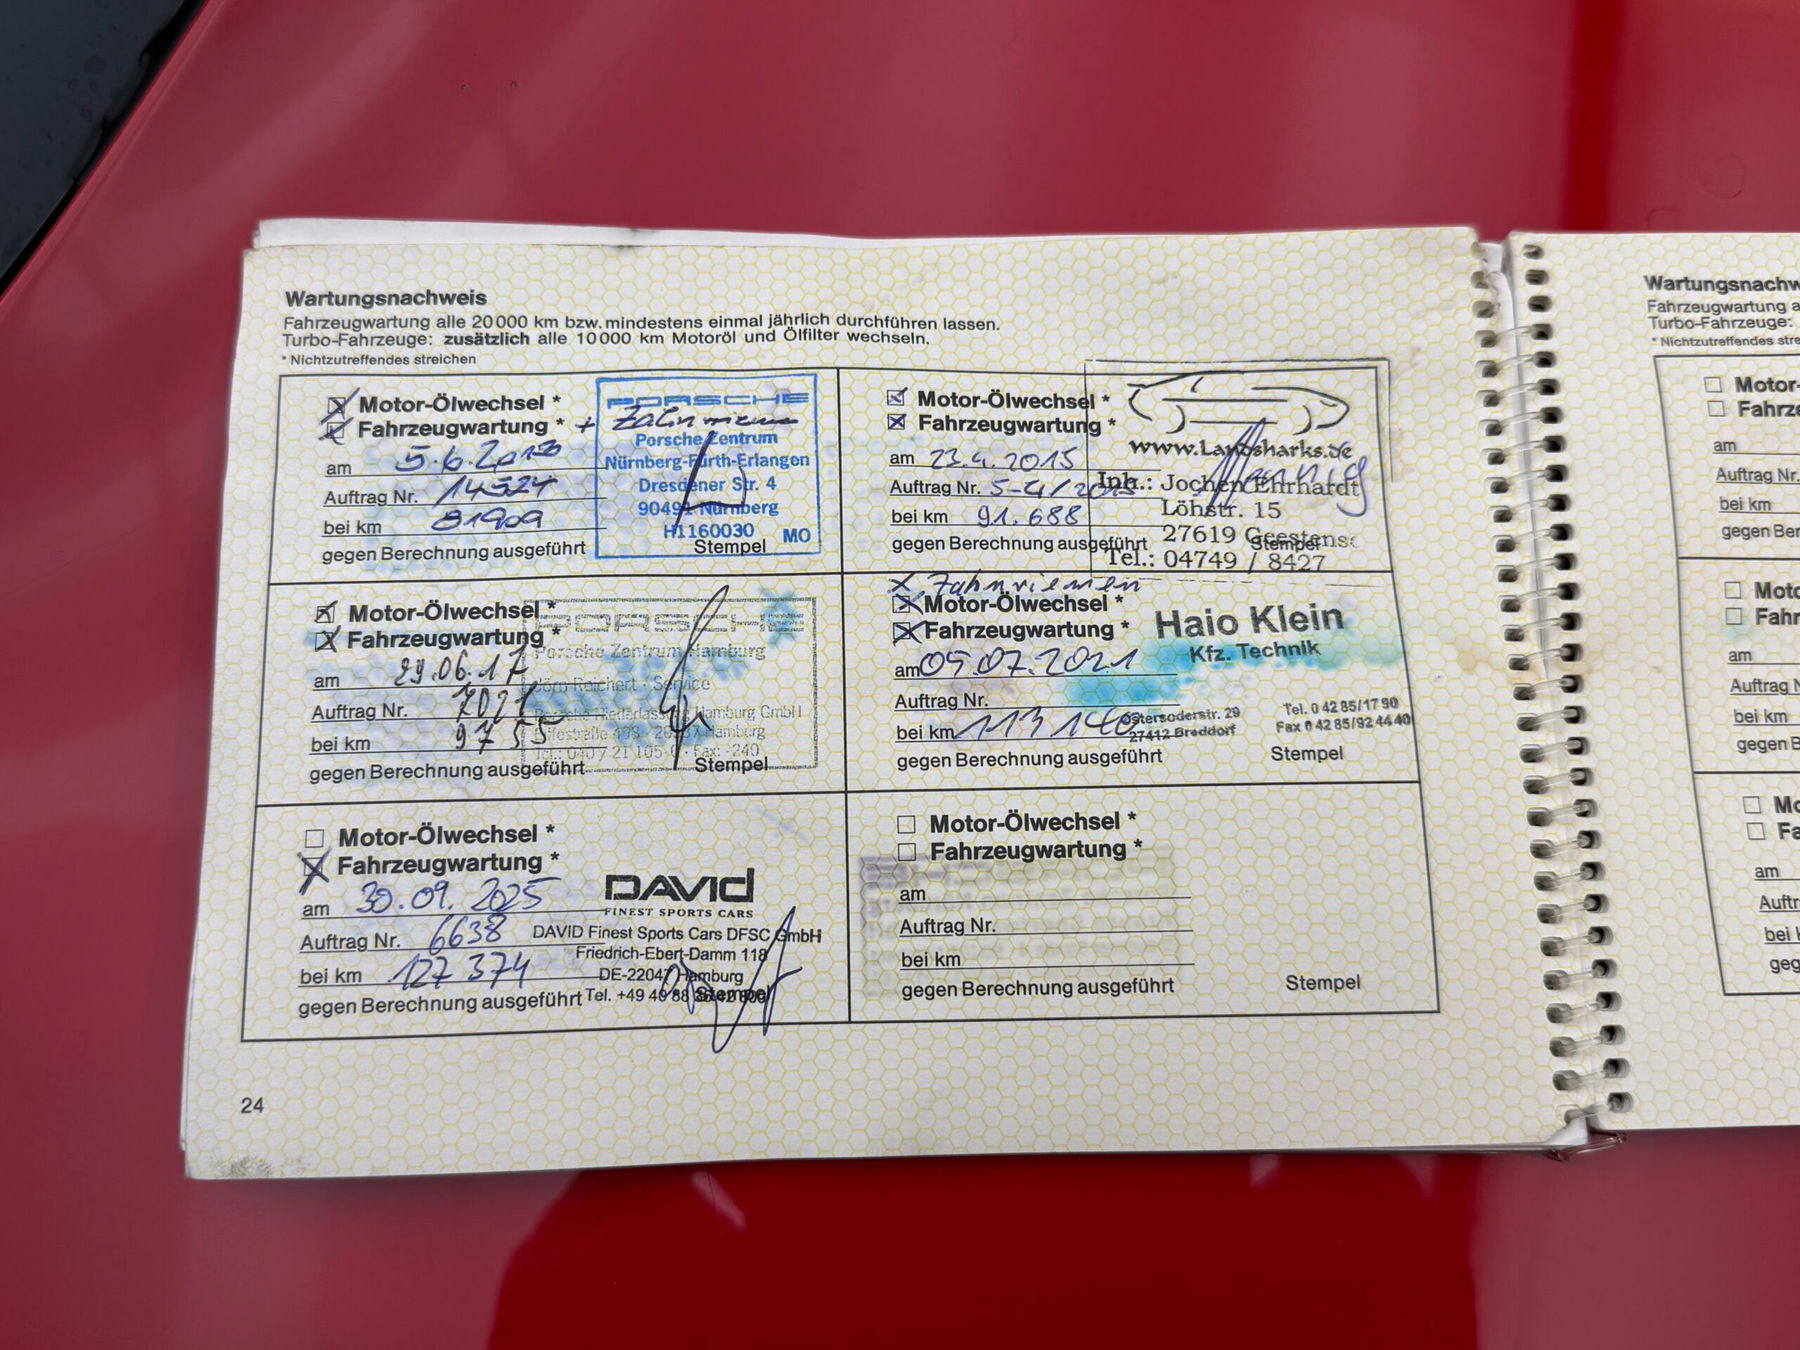 Wartungsnachweis
Fahrzeugwartung alle 20 000 km bzw. mindestens einmal jährlich durchführen lassen.
Turbo-Fahrzeuge: zusätzlich alle 10 000 km Motoröl und Ölfilter wechseln.
* Nichtzutreffendes streichen
Motor-Ölwechsel *
Fahrzeugwartung * + Zahnriemen
am 5.6.2013
Auftrag Nr. 14524
bei km 81909
gegen Berechnung ausgeführt
PORSCHE
Porsche Zentrum
Nürnberg-Fürth-Erlangen
Dresdener Str. 4
90491 Nürnberg
H1160030 MO
Stempel
Motor-Ölwechsel *
Fahrzeugwartung *
am 23.4.2015
Auftrag Nr. 5-4/2015
bei km 91.688
gegen Berechnung ausgeführt
www.Landsharks.de
Inh.: Jochen Ehrhardt
Löhstr. 15
27619 Geestens
Tel.: 04749 / 8427
Stempel
Motor-Ölwechsel *
Fahrzeugwartung *
am 29.06.17
Auftrag Nr. 7021
bei km 9755
gegen Berechnung ausgeführt
PORSCHE
Porsche Zentrum Hamburg
Jörn Reichert · Service
Hamburg GmbH
Hamburg
Fax: -240
Stempel
x Zahnriemen
Motor-Ölwechsel *
Fahrzeugwartung *
am 05.07.2021
Auftrag Nr.
bei km 113 140
gegen Berechnung ausgeführt
Haio Klein
Kfz. Technik
Ostersoderstr. 29
27412 Breddorf
Tel. 0 42 85/17 90
Fax 0 42 85/92 44 40
Stempel
Motor-Ölwechsel *
Fahrzeugwartung *
am 30.09.2025
Auftrag Nr. 6638
bei km 127 374
gegen Berechnung ausgeführt
DAVID
FINEST SPORTS CARS
DAVID Finest Sports Cars DFSC GmbH
Friedrich-Ebert-Damm 118
DE-22047 Hamburg
Tel. +49 40 88
Stempel
Motor-Ölwechsel *
Fahrzeugwartung *
am
Auftrag Nr.
bei km
gegen Berechnung ausgeführt
Stempel
24
Wartungsnachw
Fahrzeugwartung a
Turbo-Fahrzeuge:
* Nichtzutreffendes stre
Motor-
Fahrze
am
Auftrag Nr.
bei km
gegen Ber
Moto
Fahr
am
Auftrag N
bei km
gegen B
Mo
Fa
am
Auftr
bei k
geg